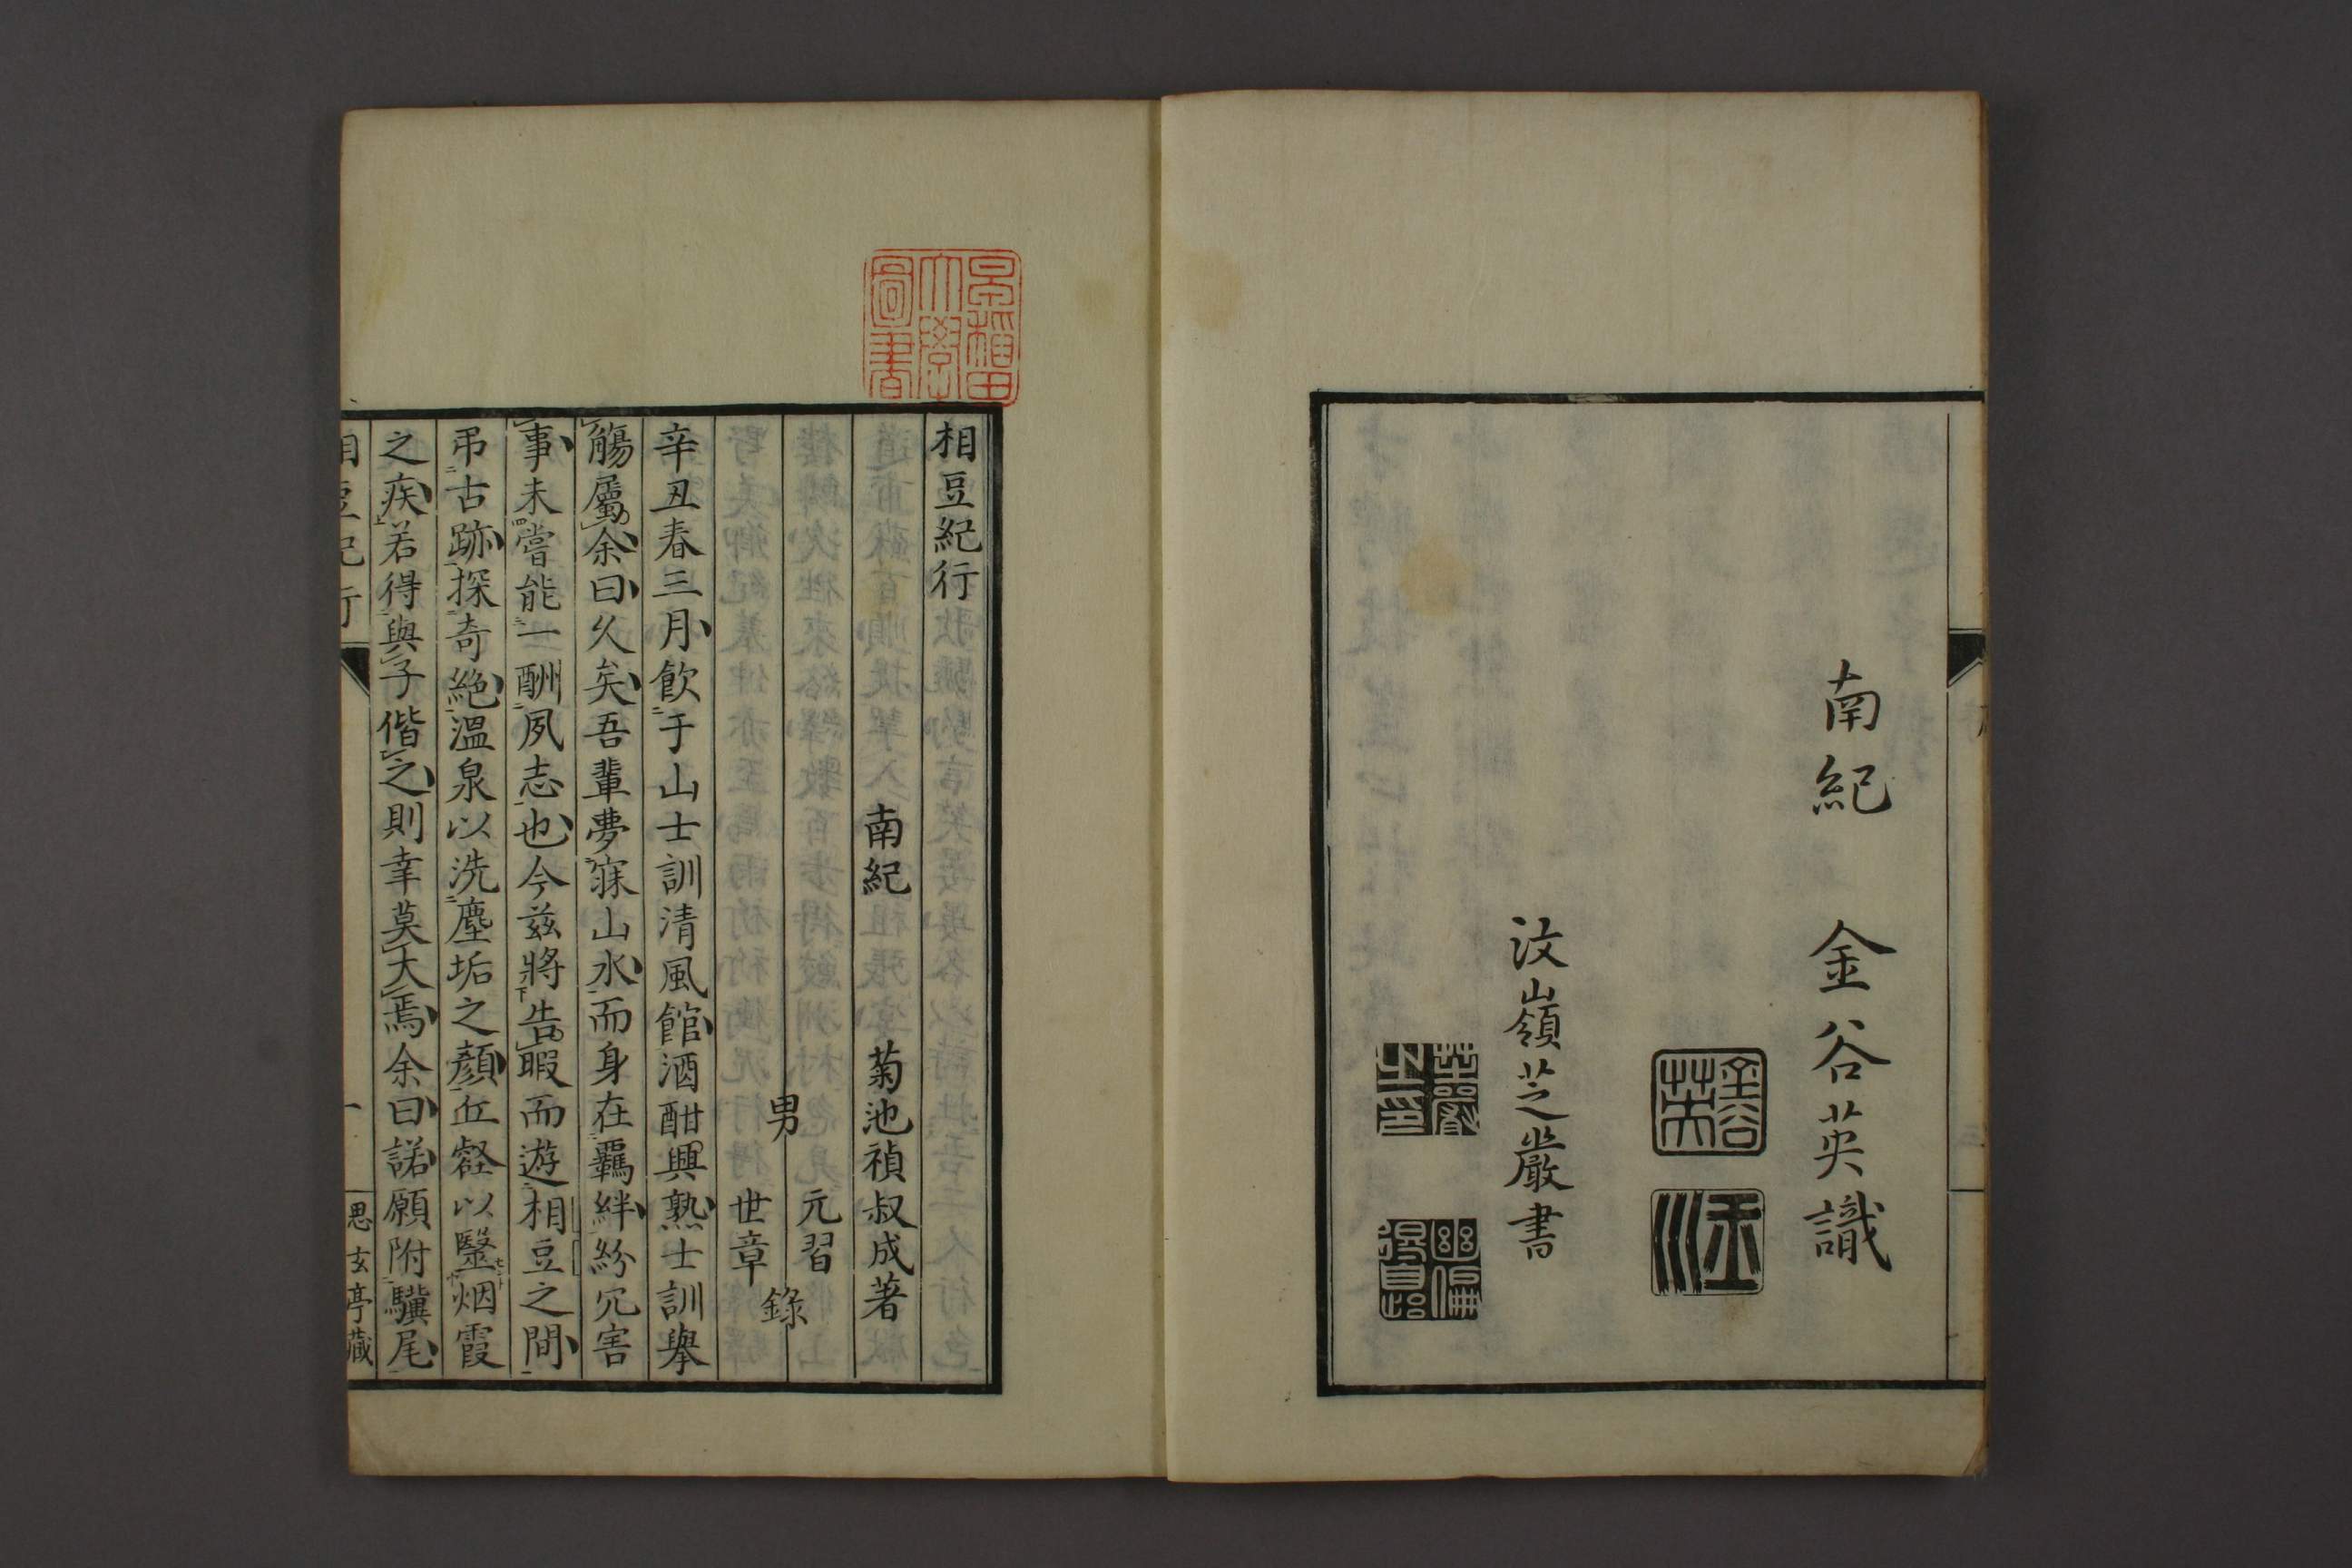 南紀 金谷英識
汶嶺芝巖書
相豆紀行
南紀 菊池禎叔成著
男 元習
世章 錄
辛丑春三月飲于山士訓清風館酒酣興熟士訓擧
觴屬余曰久矣吾輩夢寐山水而身在羈絆紛冗害
事未嘗能一酬夙志也今茲將告暇而遊相豆之間
弔古跡探奇絕溫泉以洗塵垢之顏丘壑以醫烟霞
之疾若得與子偕之則幸莫大焉余曰諾願附驥尾
相豆紀行 一 思玄亭藏
早稲田大學圖書